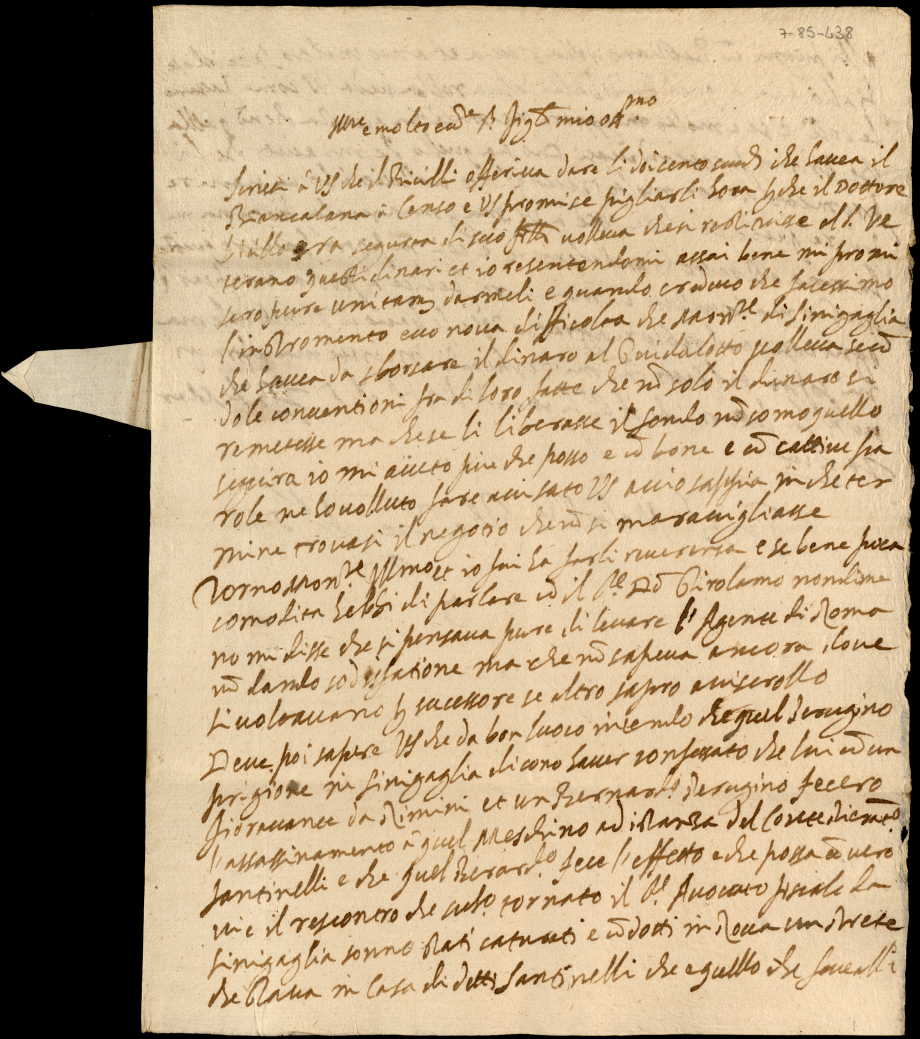 7-85-438
Ill.re e molto ecc.te S.r fig.lo mio oss.mo
scrissi à VS che il offeriva dare li doicento scudi che havea il
Brancalana à Censo e VS promise pigliarli hora p che il Dottore
era segurta di suo volleva che si redivisse
questi dinari et io resentendomi assai bene mi promi
sero pure unitam darmeli e quando credevo che facessimo
l'instromento ecco nova difficolta che Mons.re di Sinigaglia
che haveva da sborsare il dinaro al Guidalotto volleva
do le conventioni fra di loro fatte che nō solo il dinaro si
remetesse ma che se li liberasse il fondo nō so mo quello
seguira io mi aiuto piu che posso e cō bone e cō cattive pa
role ne ho volluto fare avisato VS accio sappia in che ter
mine trovasi il negotio che nō si maravigliasse
Torno Mons.re Ill.mo et io fui ha farli riverenza e se bene poca
comodita hebbi di parlare cō il S.re Dō Girolamo nondime
no mi disse che si pensava pure di levare l'Agente di Roma
nō dando sodisfatione ma che nō sapeva ancora dove
si voltavano p successore se altro sapro avisarollo
Deve poi sapere VS che da bon luoco intendo che quel Perugino
pregione in Sinigaglia dicono haver confessato che lui cō un
Fioravante da Rimini et un Bernard.o Perugino fecero
l'assassinamento à quel Meschino ad istanza del Conte
Santinelli e che quel Berard.o fece l'effetto e che possa ē vero
vi e il rescontro che sub.o tornato il S.r Avocato fiscale da
Sinigaglia sonno stati catturati e cōdotti in Rocca un Prete
che stava in Casa di detti Santinelli che e quello che